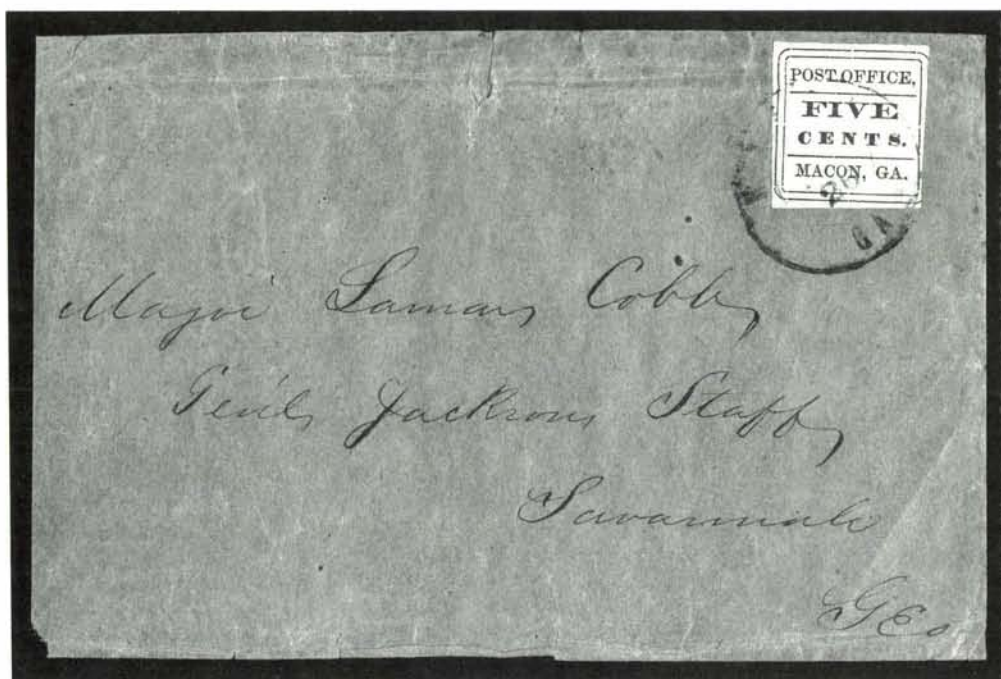 POST OFFICE,
FIVE
CENTS.
MACON, GA.
20
GA
Major Lamar Cobb
Gen'l Jacksons Staff
Savannah
Geo